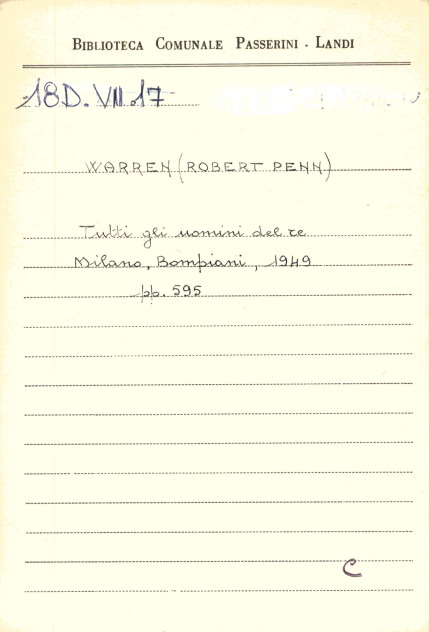 BIBLIOTECA COMUNALE PASSERINI - LANDI
18D. VII.17
WARREN (ROBERT PENN)
Tutti gli uomini del re
Milano, Bompiani, 1949
pp. 595
C